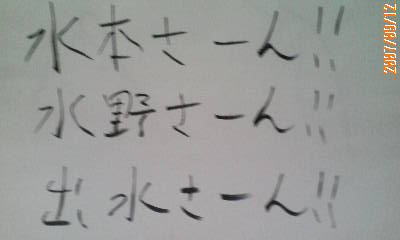 水本さーん!!
水野さーん!!
出水さーん!!
2007/09/12